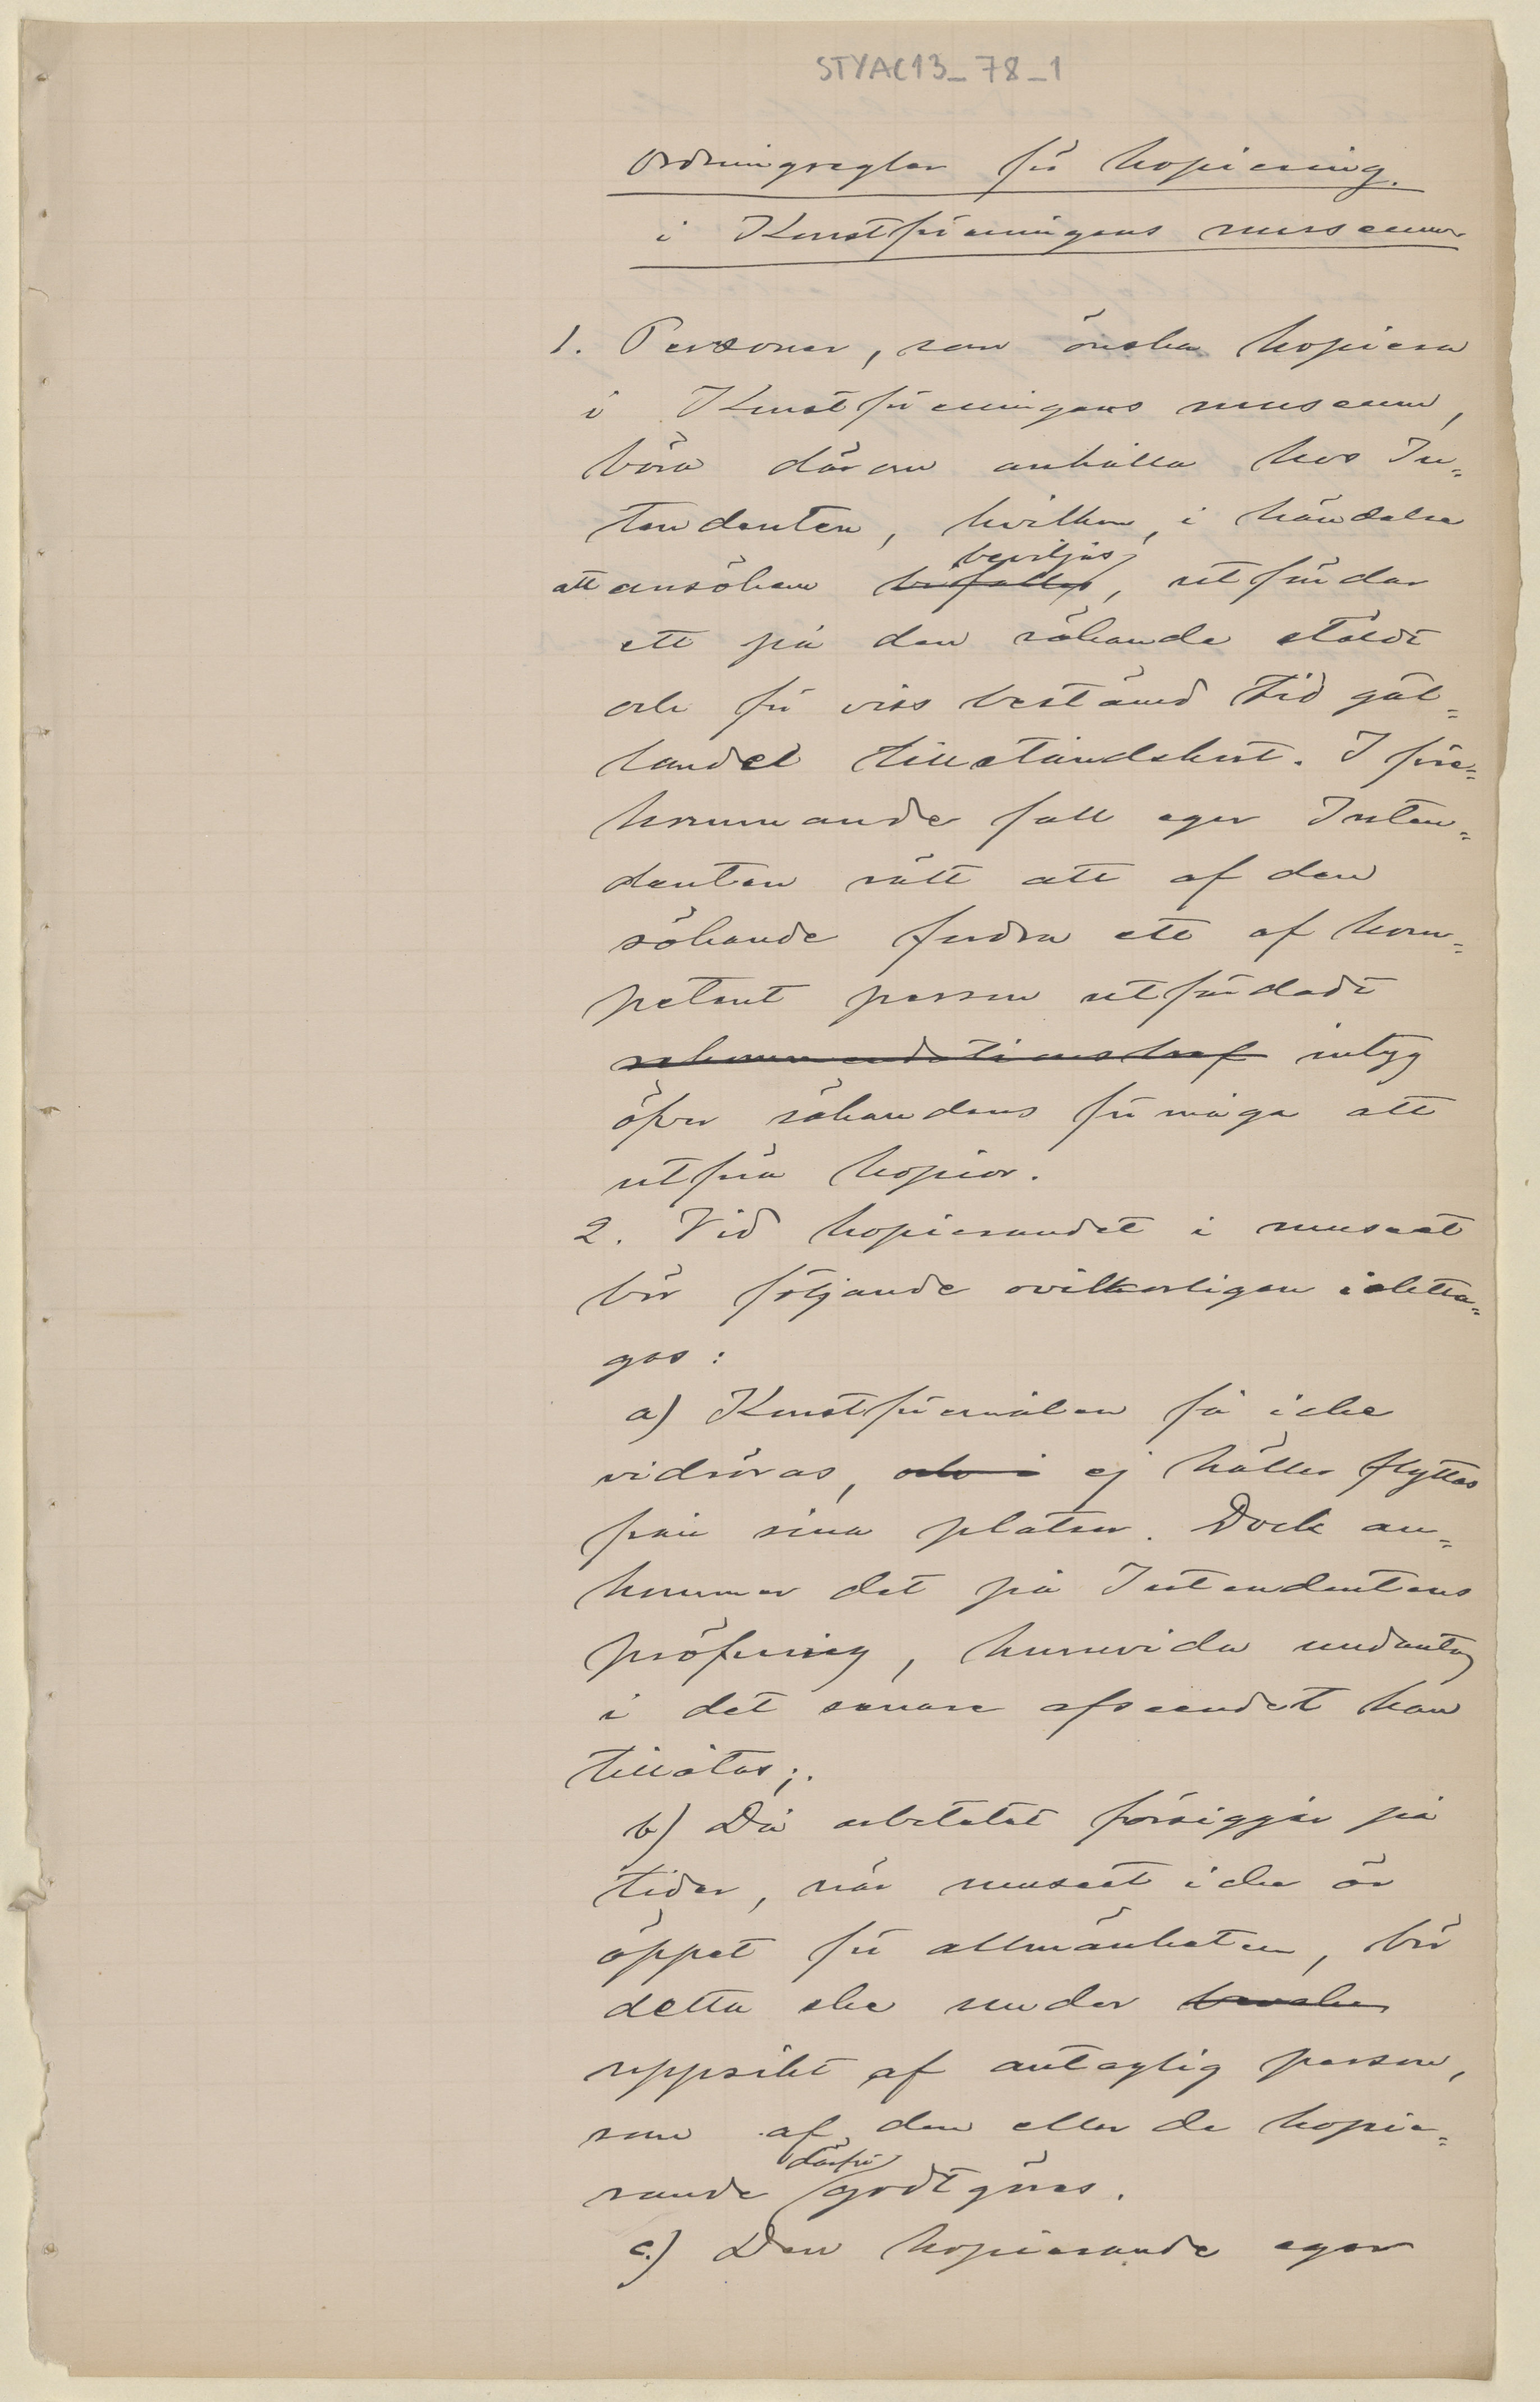 STYAC13_78_1
Ordningsreglor för kopiering.
i Konstföreningens museum
1. Personer, som önska kopiera
i Konstföreningens museum,
böra därom anhålla hos In=
tendenten, hvilken, i händelse
beviljas
att ansökan bifalles, utfärdar
ett på den sökande stäldt
och för viss bestämd tid gäl=
landet tillståndskort. I före=
kommande fall eger Inten=
denten rätt att af den
sökande fordra ett af kom=
petent person utfärdadt
rekommendationsbref intyg
öfver sökandens förmåga att
utföra kopior.
2. Vid kopierandet i museet
bör följande ovilkorligen iaktta=
gas:
a) Konstföremålen få icke
vidröras, och i ej häller flyttas
från sina platser. Dock an=
kommer det på Intendentens
pröfning, huruvida undantag
i det senare afseendet kan
tillåtas;.
b) Då arbetatet försiggår på
tider, när museet icke är
öppet för allmänheten, bör
detta ske under
uppsikt af antaglig person,
som af den eller de kopie=
därför
rande godtgöres.
c.) Den kopierande eger